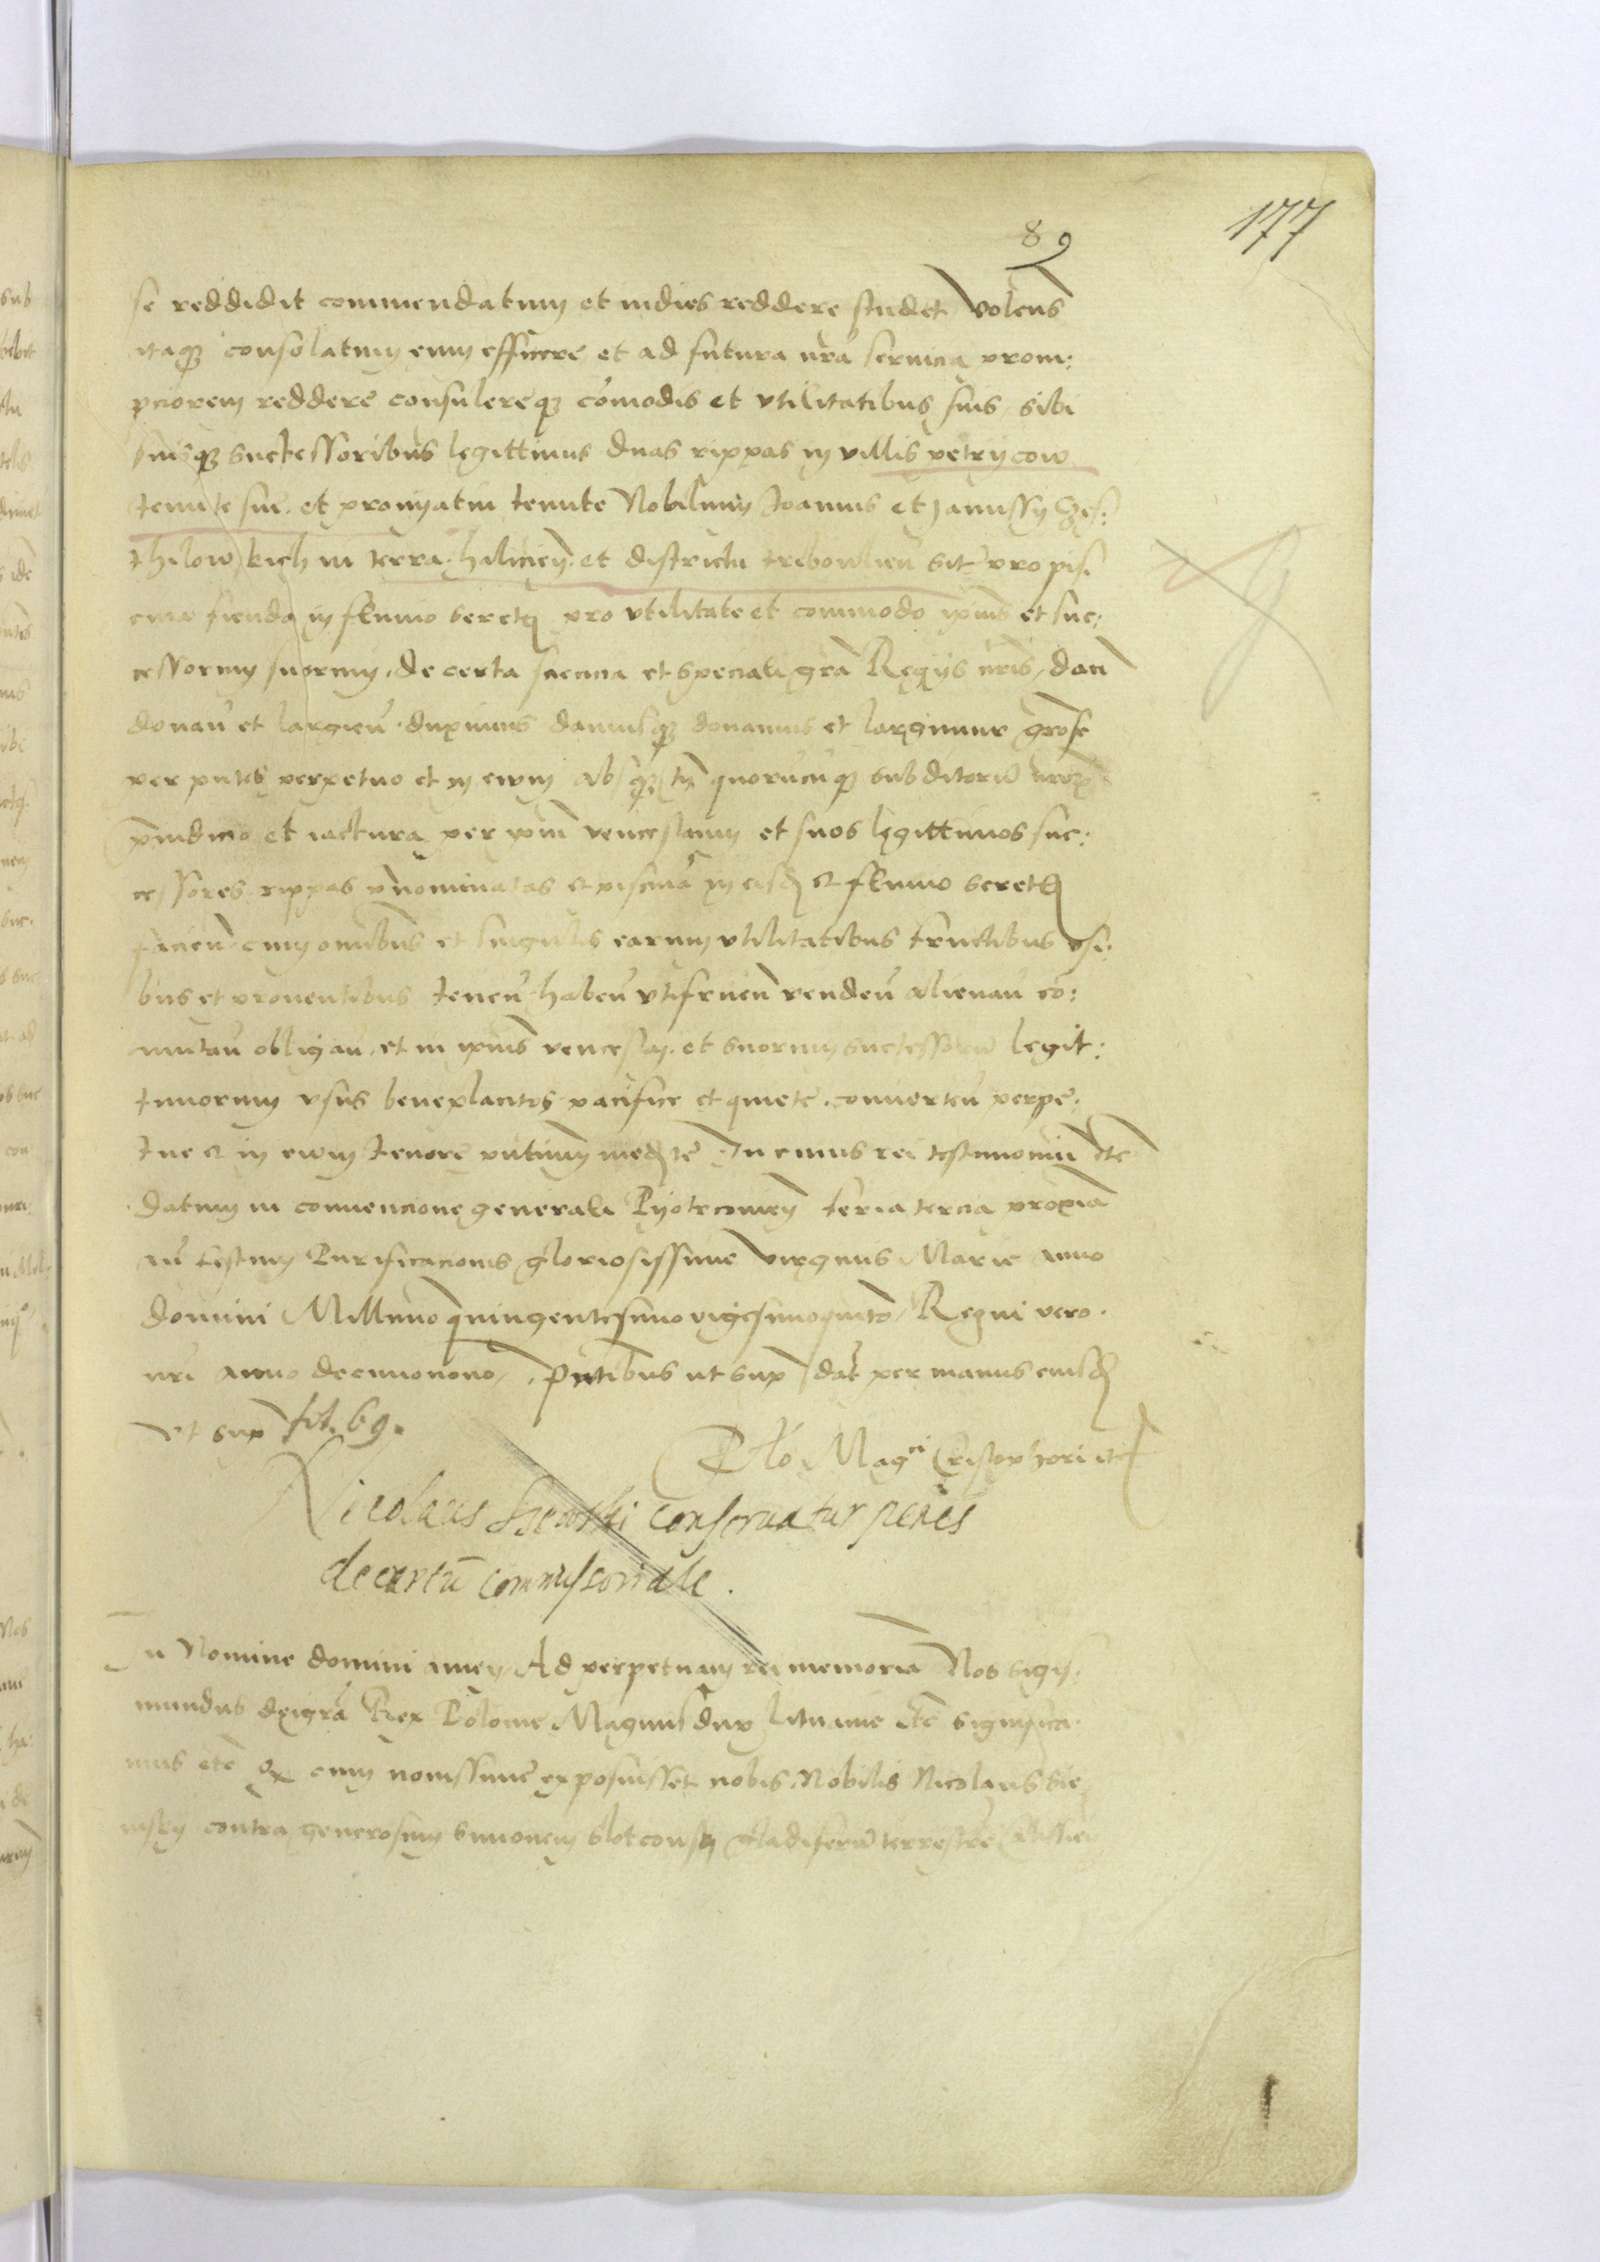 177
89
se reddidit commendatum et indies reddere studet Volens
itaque consolatum eum efficere et ad futura nra servicia prom:
pciorem reddere consulereque comodis et utilitatibus suis sibi
suisque successoribus legittimis duas rippas in villis petrijcow
tenute sue et promyatin tenute Nobilium Joannis et Janussij
in terra haliciens et districtu trebowlien sit pro pis:
cina fienda in fluvio sereth pro utilitate et commodo ipius et suc:
cessorum suorum de certa sciencia et speciali gra Regijs nris dan
donan et largien duximus damusque donamus et largimur grose
per pntes perpetuo et in ewum absque tn quorucuque subditoru nrorum
preiudicio et iactura per ipm venceslaum et suos legittimos suc:
cessores rippas pnominatas et piscina in eisdem et fluvio sereth
facien cum omnibus et singulis earum utilitatibus fructibus usi:
bus et proventibus tenen haben utifruen venden alienan co:
mutan obligan et in ipius venceslai et suorum successoru legit:
timorum usus beneplacitos pacifice et quiete converten perpe:
tue et in ewum tenore pntium mediante In cuius rei testimonium etc
datum in convencione generali Pyotrcoviens feria tercia proxima
an festum Purificacionis gloriosissime virginis Marie anno
domini Millimo quingentesimo vigesimoquinto Regni vero
nri anno decimonono Pntibus ut supra dat per manus eiusdem
ut supra fol. 69.
Rlo Magci Cristophori etc
Nicolaus conservatur penes
decretu commissoriale.
In Nomine domini amen Ad perpetuam rei memoria Nos Sigis
mundus dei gra Rex Polonie Magnus dux lituanie etc significa
mus etc Q cum novissime exposuisset nobis Nobilis Nicolaus Sie
nskij contra generosum Simonem gladiferu terrestre